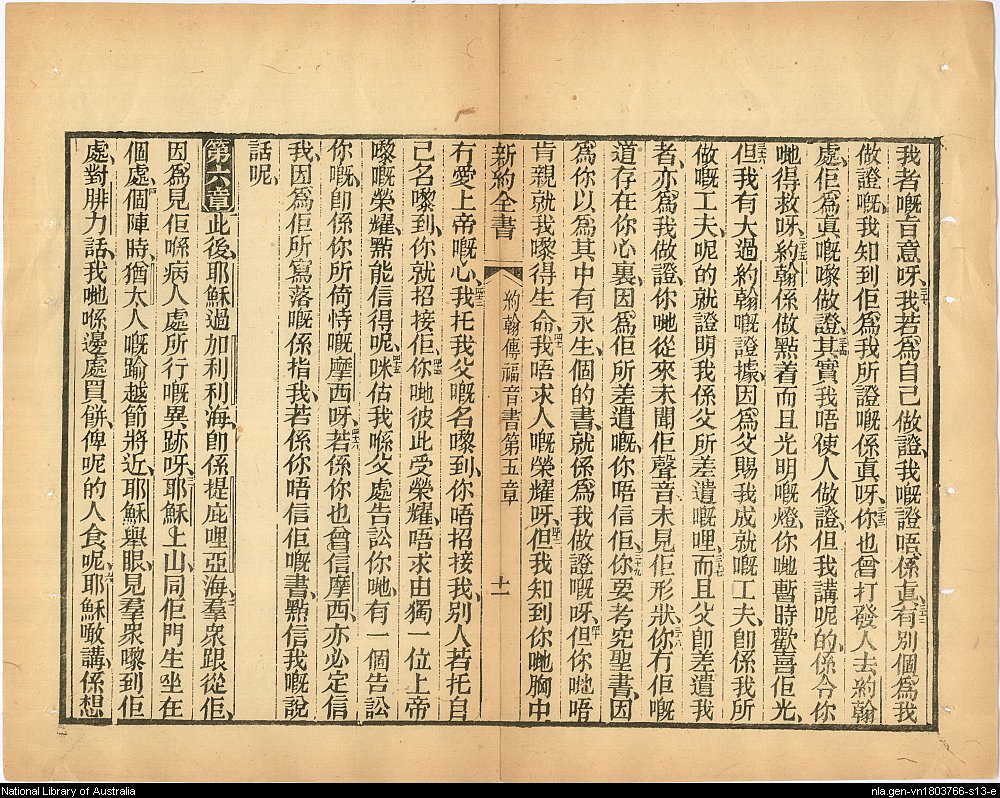 我者嘅旨意呀、三十一我若爲自己做證、我嘅證唔係眞、三十二有別個爲我
做證嘅、我知到佢爲我所證嘅係眞呀、三十三你也曾打發人去約翰
處、佢爲眞嘅嚟做證、三十四其實我唔使人做證、但我講呢的、係令你
哋得救呀、三十五約翰係做點着而且光明嘅燈、你哋暫時歡喜佢光、
三十六但我有大過約翰嘅證據、因爲父賜我成就嘅工夫、卽係我所
做嘅工夫、呢的就證明我係父所差遣嘅哩、三十七而且父卽差遣我
者、亦爲我做證、你哋從來未聞佢聲音、未見佢形狀、三十八你冇佢嘅
道存在你心裏、因爲佢所差遣嘅、你唔信佢、三十九你要考究聖書、因
爲你以爲其中有永生、個的書、就係爲我做證嘅呀、四十但你哋唔
肯親就我嚟得生命、四十一我唔求人嘅榮耀呀、四十二但我知到你哋胸中
新約全書 約翰傳福音書第五章 十一
冇愛上帝嘅心、四十三我托我父嘅名嚟到、你唔招接我、別人若托自
己名嚟到、你就招接佢、四十四你哋彼此受榮耀、唔求由獨一位上帝
嚟嘅榮耀、點能信得呢、四十五咪估我喺父處告訟你哋、有一個告訟
你嘅、卽係你所倚恃嘅摩西呀、四十六若係你也曾信摩西、亦必定信
我、因爲佢所寫落嘅係指我、四十七若係你唔信佢嘅書、點信我嘅說
話呢、
第六章 此後、耶穌過加利利海、卽係提庇哩亞海、二羣衆跟從佢、
因爲見佢喺病人處所行嘅異跡呀、三耶穌上山、同佢門生坐在
個處、四個陣時、猶太人嘅踰越節將近、五耶穌舉眼、見羣衆嚟到佢
處、對腓力話、我哋喺邊處買餅、俾呢的人食呢、六耶穌噉講、係想
National Library of Australia
nla.gen-vn1803766-s13-e